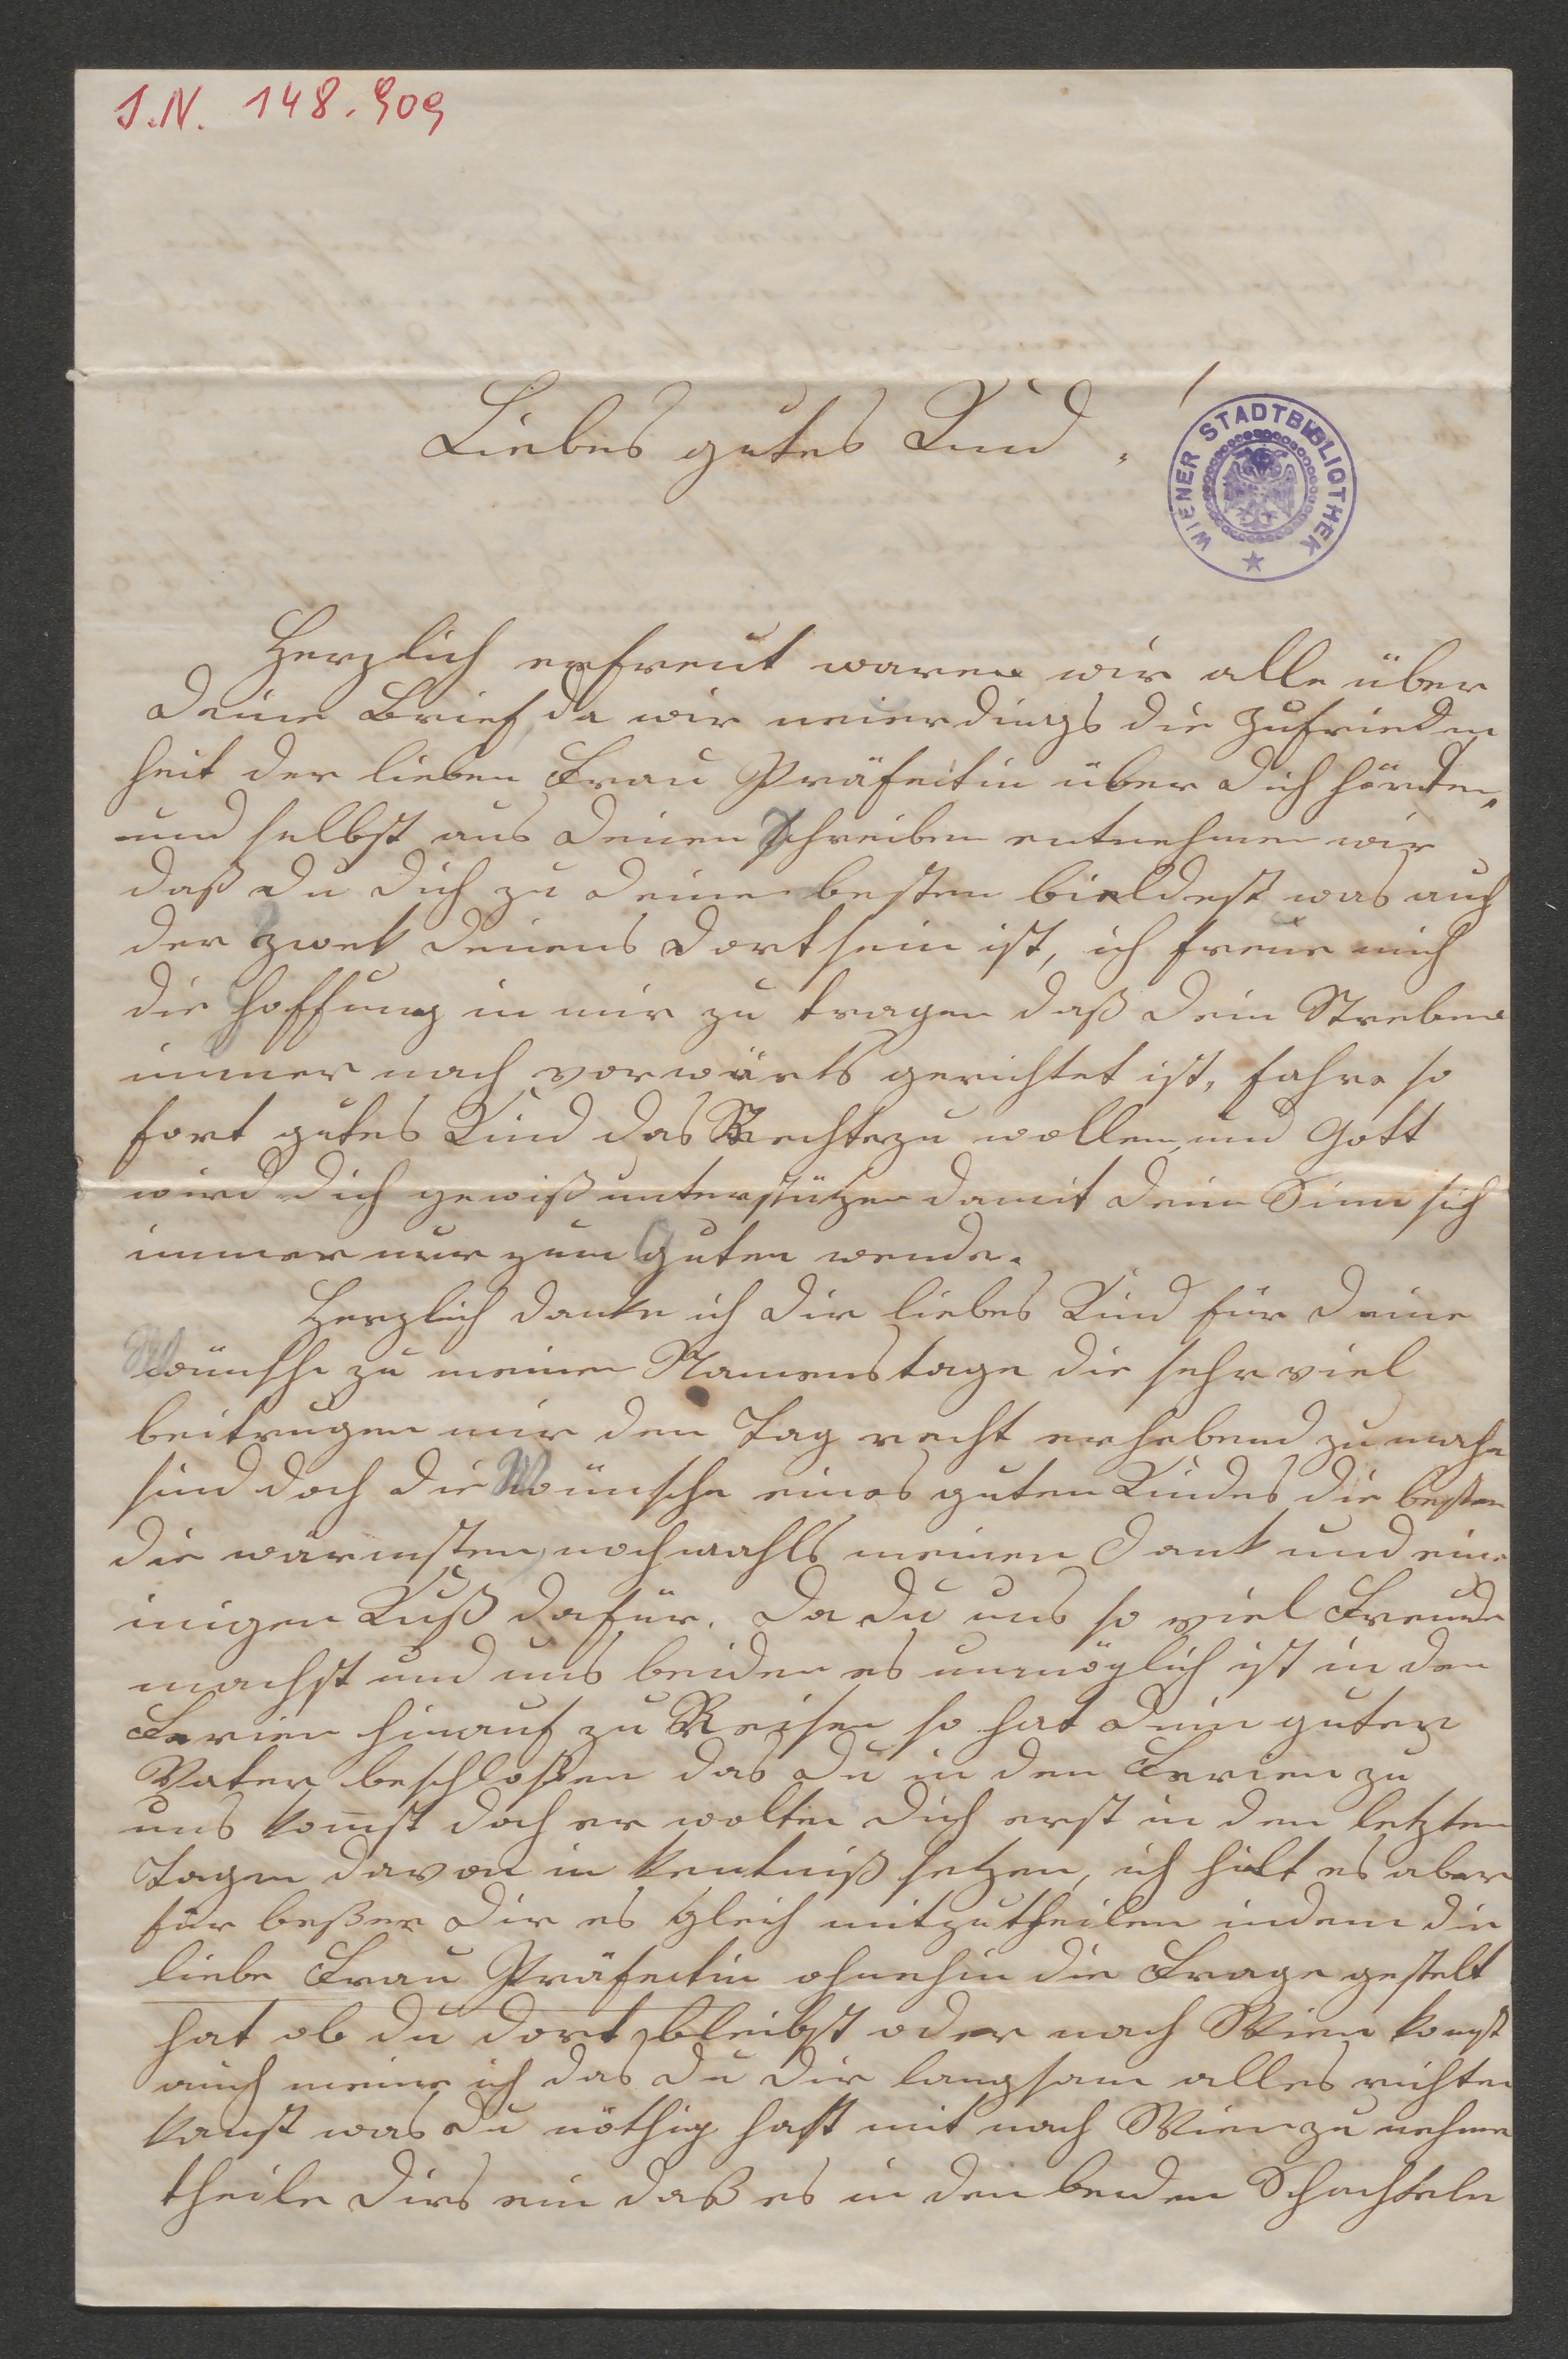 I.N. 148.909
Liebes gutes Kind !
WIENER STADTBIBLIOTHEK
Herzlich erfreut waren wir alle über
Deine Brief, da wir neuerdings die Zufrieden
heit der lieben Frau Präfectin über Dich hörten,
und selbst aus Deinen Schreiben entnehmen wir
daß Du Dich zu Deinen besten bieldest was auch
der Zwek Deines Dortsein ist, ich freue mich
die Hoffung in mir zu tragen daß Dein Streben
immer nach vorwärts gerichtet ist, fahre so
fort gutes Kind das Rechte zu wollen, und Gott
wird Dich gewiß unterstützen damit Dein Sinn sich
immer nur zum Guten wende.
Herzlich danke ich Dir liebes Kind für Deine
Wünsche zu meinen Namenstage die sehr viel
beitrugen mir den Tag recht erhebend zu mache
sind doch die Wünsche eines guten Kindes die besten
die wärmsten, nochmahls meinen Dank und eine
inigen Kuß dafür. Da Du uns so viel Freude
machst und uns beiden es unmöglich ist in den
Ferien hinauf zu Reisen so hat Dein guter
Vater beschloßen das Du in den Ferien zu
uns kom̄st doch er wolte Dich erst in den letzten
Tagen davon in kentniß setzen, ich hilt es aber
für beßer Dir es gleich mitzutheilen indem die
liebe Frau Präfectin ohnehin die Frage gestelt
hat ob Du dort bleibst oder nach Wien komst
auch meine ich das Du Dir langsam alles richten
kanst was Du nöthig hast mit nach Wien zu nehmen
theile Dirs ein daß es in den beiden Schachteln